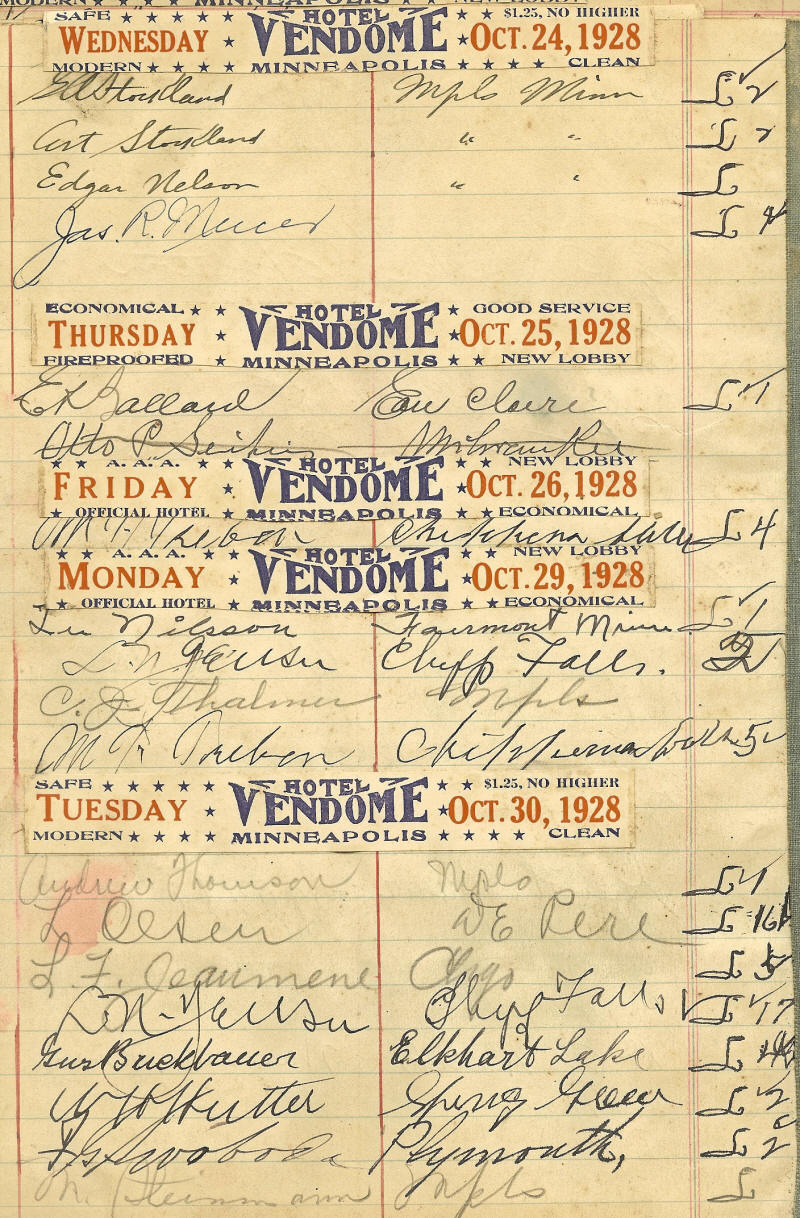 SAFE ★ ★ HOTEL $1.25, NO HIGHER
WEDNESDAY ★ VENDOME ★ OCT. 24, 1928
MODERN ★ ★ ★ ★ MINNEAPOLIS ★ ★ ★ ★ CLEAN
Stockland Mpls Minn L 2
Art Stockland " " L 2
Edgar Nelson " " L
Jas. R. Mercer L 4
ECONOMICAL ★ ★ HOTEL ★ GOOD SERVICE
THURSDAY ★ VENDOME ★ OCT. 25, 1928
FIREPROOFED ★ MINNEAPOLIS ★ ★ NEW LOBBY
E K Ballard Eau Claire L 1
Otto P. Milwaukee
★ ★ A. A. A. ★ ★ HOTEL ★ ★ NEW LOBBY
FRIDAY ★ VENDOME ★ OCT. 26, 1928
★ OFFICIAL HOTEL ★ MINNEAPOLIS ★ ★ ECONOMICAL
Trebon Chippewa L 4
★ ★ A. A. A. ★ ★ HOTEL ★ ★ NEW LOBBY
MONDAY ★ VENDOME ★ OCT. 29, 1928
★ OFFICIAL HOTEL ★ MINNEAPOLIS ★ ★ ECONOMICAL
Nilsson Fairmont Minn. L 1
L. N. Chipp Falls.
C. J. Thalmer Mpls
Trebon Chippewa Falls 5
SAFE ★ ★ ★ ★ ★ HOTEL ★ ★ $1.25, NO HIGHER
TUESDAY ★ VENDOME ★ OCT. 30, 1928
MODERN ★ ★ ★ ★ MINNEAPOLIS ★ ★ ★ ★ CLEAN
Andrew Thomson Mpls L 1
L Olsen DE Pere L 16
L. F. Jeaumene Chgo L 5
L. N. Chipp Falls L 17
Gus Buckbauer Elkhart Lake L
W H Hutter Spring Green L 2
Swoboda Plymouth, L 2
M. Steinmann Mpls L